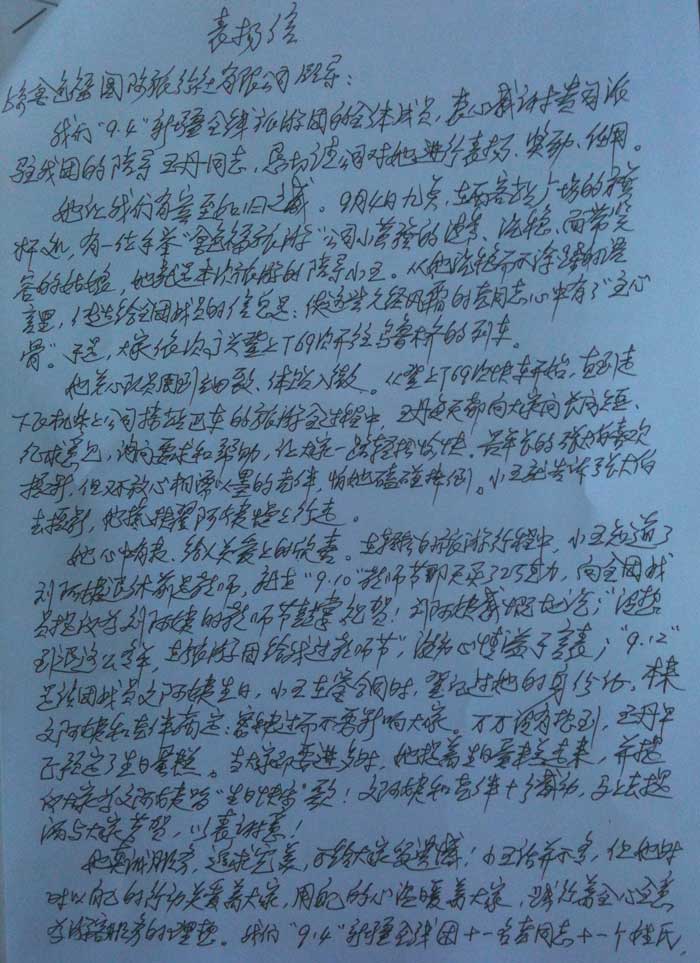 表扬信
国际旅行社有限公司领导：
我们“9.4”新疆全线旅游团的全体成员，衷心感谢贵司派
驻我团的陪导王丹同志，恳切请公司对她进行表扬、奖励、
她让我们有宾至如归之感。9月4日九点，在西客站广场的
有一位手举“金色福旅游”公司小黄旗的
容的姑娘，她就是本次旅游的陪导小王。从她
里，传递给全团成员的信息是：使这些久经风霜的老同志心中有了“主心
骨”。于是，大家依次序登上T69次开往乌鲁木齐的列车。
她关心队员周到细致、体贴入微。从登上T69次快车开始，直到走
下飞机坐上公司接站巴车的旅游全过程中，王丹每天都向大家问长问短、
征求意见，询问要求和帮助，让大家一路轻松愉快。年长的张大伯喜欢
摄影，但又不放心相濡以墨的老伴，怕她磕碰摔倒。小王就告诉张大伯
去摄影，她搀扶着阿姨慢上行走。
她心中有表、给人关爱上的欣喜。在 的旅游行程中，小王知道了
刘阿姨退休前是教师，就在“9.10”教师节那天 ，向全团成
员提议为刘阿姨的教师节鼓掌祝贺！刘阿姨感慨地说；“没想
到退这么多年，在旅游团给我过教师节”，激动心情溢于言表；“9.12”
是该团成员文阿姨生日，小王在签合同时，登记过她的身份证。本来
文阿姨和老伴商定：悄悄过而不要影响大家。万万没有想到，王丹早
已预定了生日蛋糕。当大家即要进餐时，她提着生日蛋糕走过来，并提
议大家为文阿姨唱“生日快乐”歌！文阿姨和老伴十分感动，马上去提
酒与大家共贺，以表谢意！
她真诚服务，追求完美，不给大家留遗憾！小王话并不多，但她时
时以自己的行动关爱着大家，用自己的心温暖着大家，践行着全心全意
为游客服务的理想。我们“9.4”新疆全线团十一名老同志十一个姓氏，